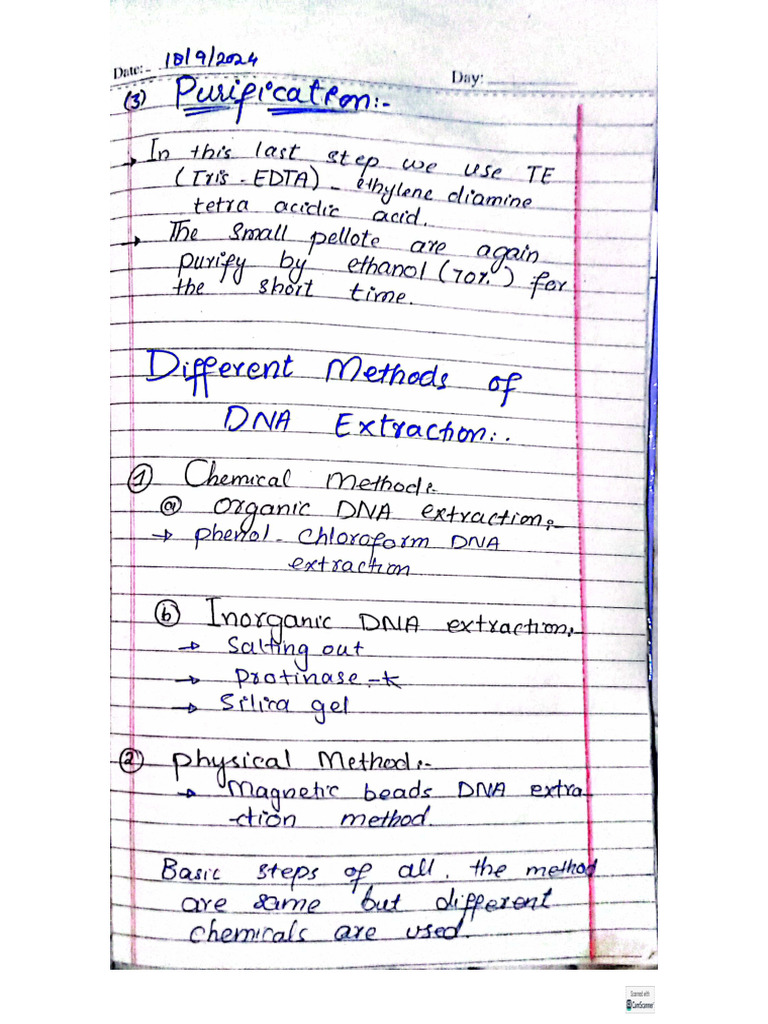 Date:- 18/9/2024
Day:
(3) Purification:-
→ In this last step we use TE
(Tris-EDTA) - ethylene diamine
tetra acidic acid.
→ The small pellote are again
purify by ethanol (70%) for
the short time.
Different Methods of
DNA Extraction:-
① Chemical Method:-
ⓐ Organic DNA extraction:-
→ phenol-chloroform DNA
extraction
ⓑ Inorganic DNA extraction:-
→ Salting out
→ Protinase-K
→ Silica gel
② Physical Method:-
→ Magnetic beads DNA extra
-ction method.
Basic steps of all. the method
are same but different
chemicals are used.
Scanned with
CamScanner